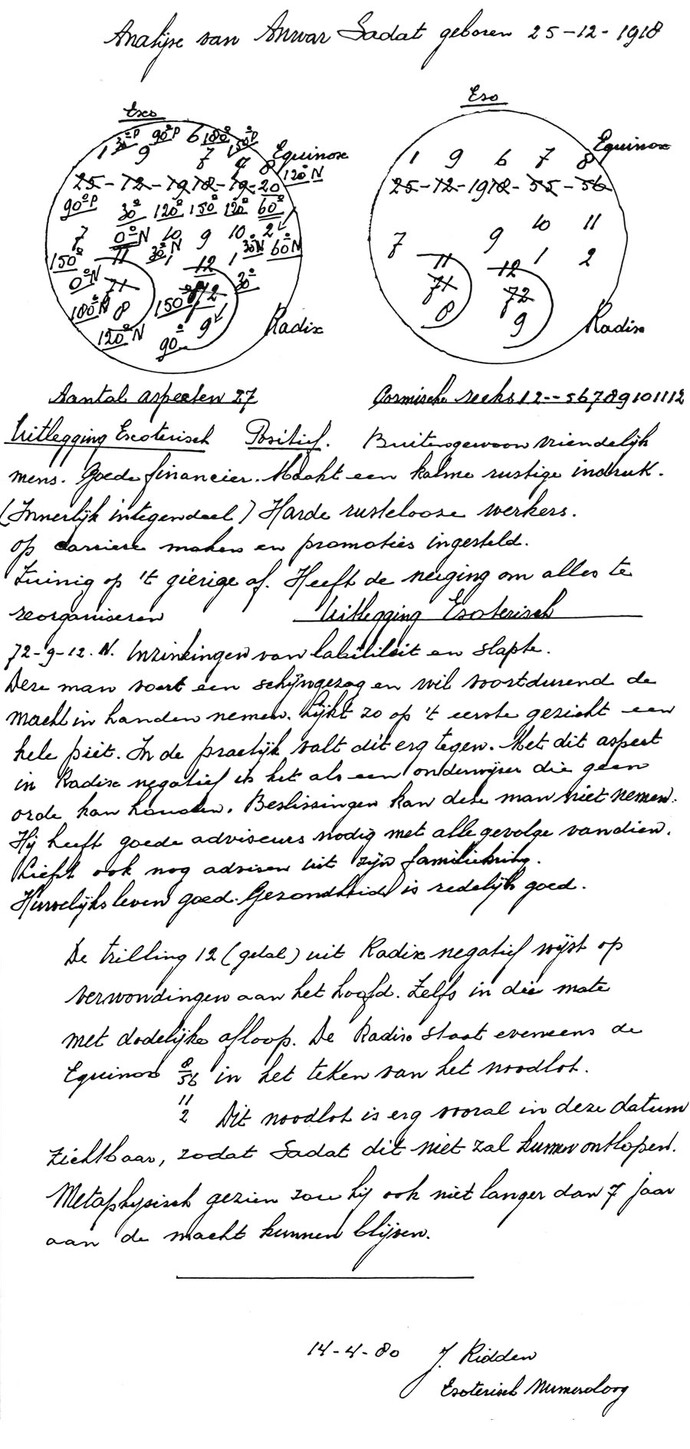 Analyse van Anwar Sadat geboren 25-12-1918
Exo
Eso
1 30°P 90°P 6 180° 150°P
9 7 9 8 Equinox
120°N
25-72-1978-79-20
90°P 30° 120° 150° 120° 60°
7 0°N 10 9 10 2
150° 11 30°N 1 12 1 30°N 60°N
0°N 71 30°
180°N 8 150° 72
120°N 9 Radix
90°
1 9 6 7 8 Equinox
25-72-1978-55-56
7 9 10 11
11 12 1 2
71 72
8 9 Radix
Aantal aspecten 27
Cosmische reeks 12--56789101112
Uitlegging Exoterisch Positief. Buitengewoon vriendelijk
mens. Goede financier. Maakt een kalme rustige indruk.
(Innerlijk integendeel) Harde rusteloose werkers.
op carriere maken en promoties ingesteld.
Zuinig op 't gierige af. Heeft de neiging om alles te
reorganiseren
Uitlegging Esoterisch
72-9-12.N. Inzinkingen van labiliteit en slapte.
Deze man voert een schijngezag en wil voortdurend de
macht in handen nemen. Lijkt zo op 't eerste gezicht een
hele piet. In de practijk valt dit erg tegen. Met dit aspect
in Radix negatief is het als een onderwijzer die geen
orde kan houden. Beslissingen kan deze man niet nemen.
Hij heeft goede adviseurs nodig met alle gevolge vandien.
Liefst ook nog adviezen uit zijn familiekring.
Huwelijksleven goed. Gezondheid is redelijk goed.
De trilling 12 (getal) uit Radix negatief wijst op
verwondingen aan het hoofd. Zelfs in die mate
met dodelijke afloop. De Radix staat eveneens de
Equinox 8/56 in het teken van het noodlot.
11
2 Dit noodlot is erg vooral in deze datum
zichtbaar, zodat Sadat dit niet zal kunnen ontlopen.
Metaphysisch gezien zou hij ook niet langer dan 7 jaar
aan de macht kunnen blijven.
14-4-80 J. Kidden
Esoterisch Numeroloog